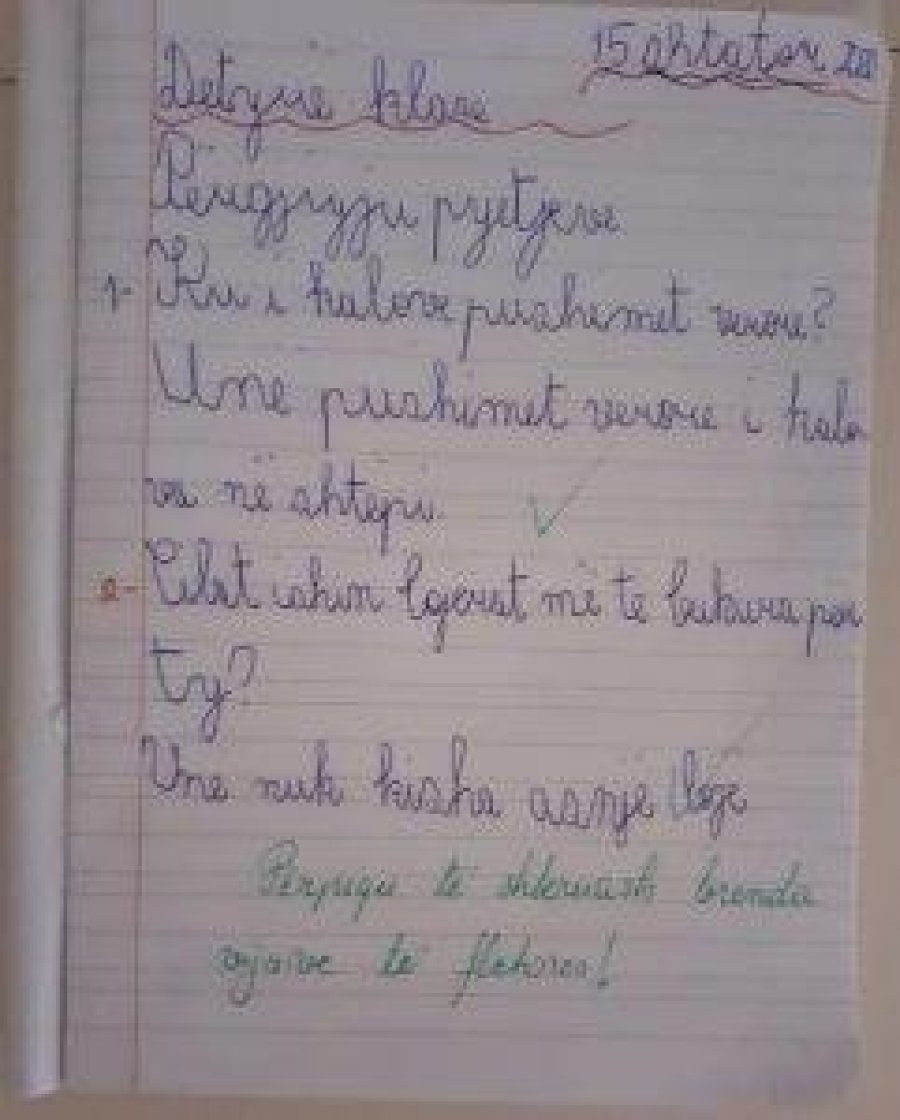 15 shtator 20
Detyrë klase
Përgjigjju pyetjeve
1- Ku i kalove pushimet verore?
Unë pushimet verore i kalo
va në shtepi.
2- Cilat ishin lojrat më të bukura për
ty?
Une nuk kisha asnjë lojë
Perpiqu të shkruash brenda
vijave të fletores!